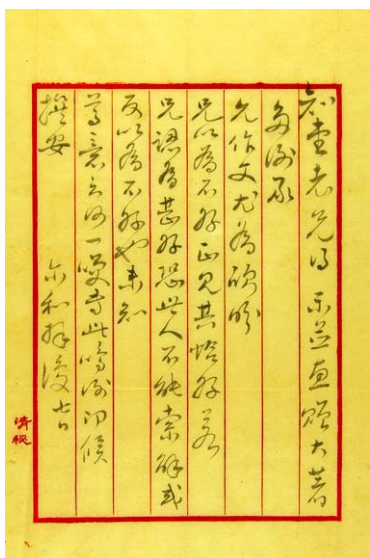 知堂老兄得 示并惠贈大著
多謝承
允作文尤為欣盼
兄以為不好正見其恰好若
兄認為甚好恐世人不能索解或
反以為不好也未知
尊意云何一笑專此鳴謝即候
撰安 亦和拜復 七日
清秘